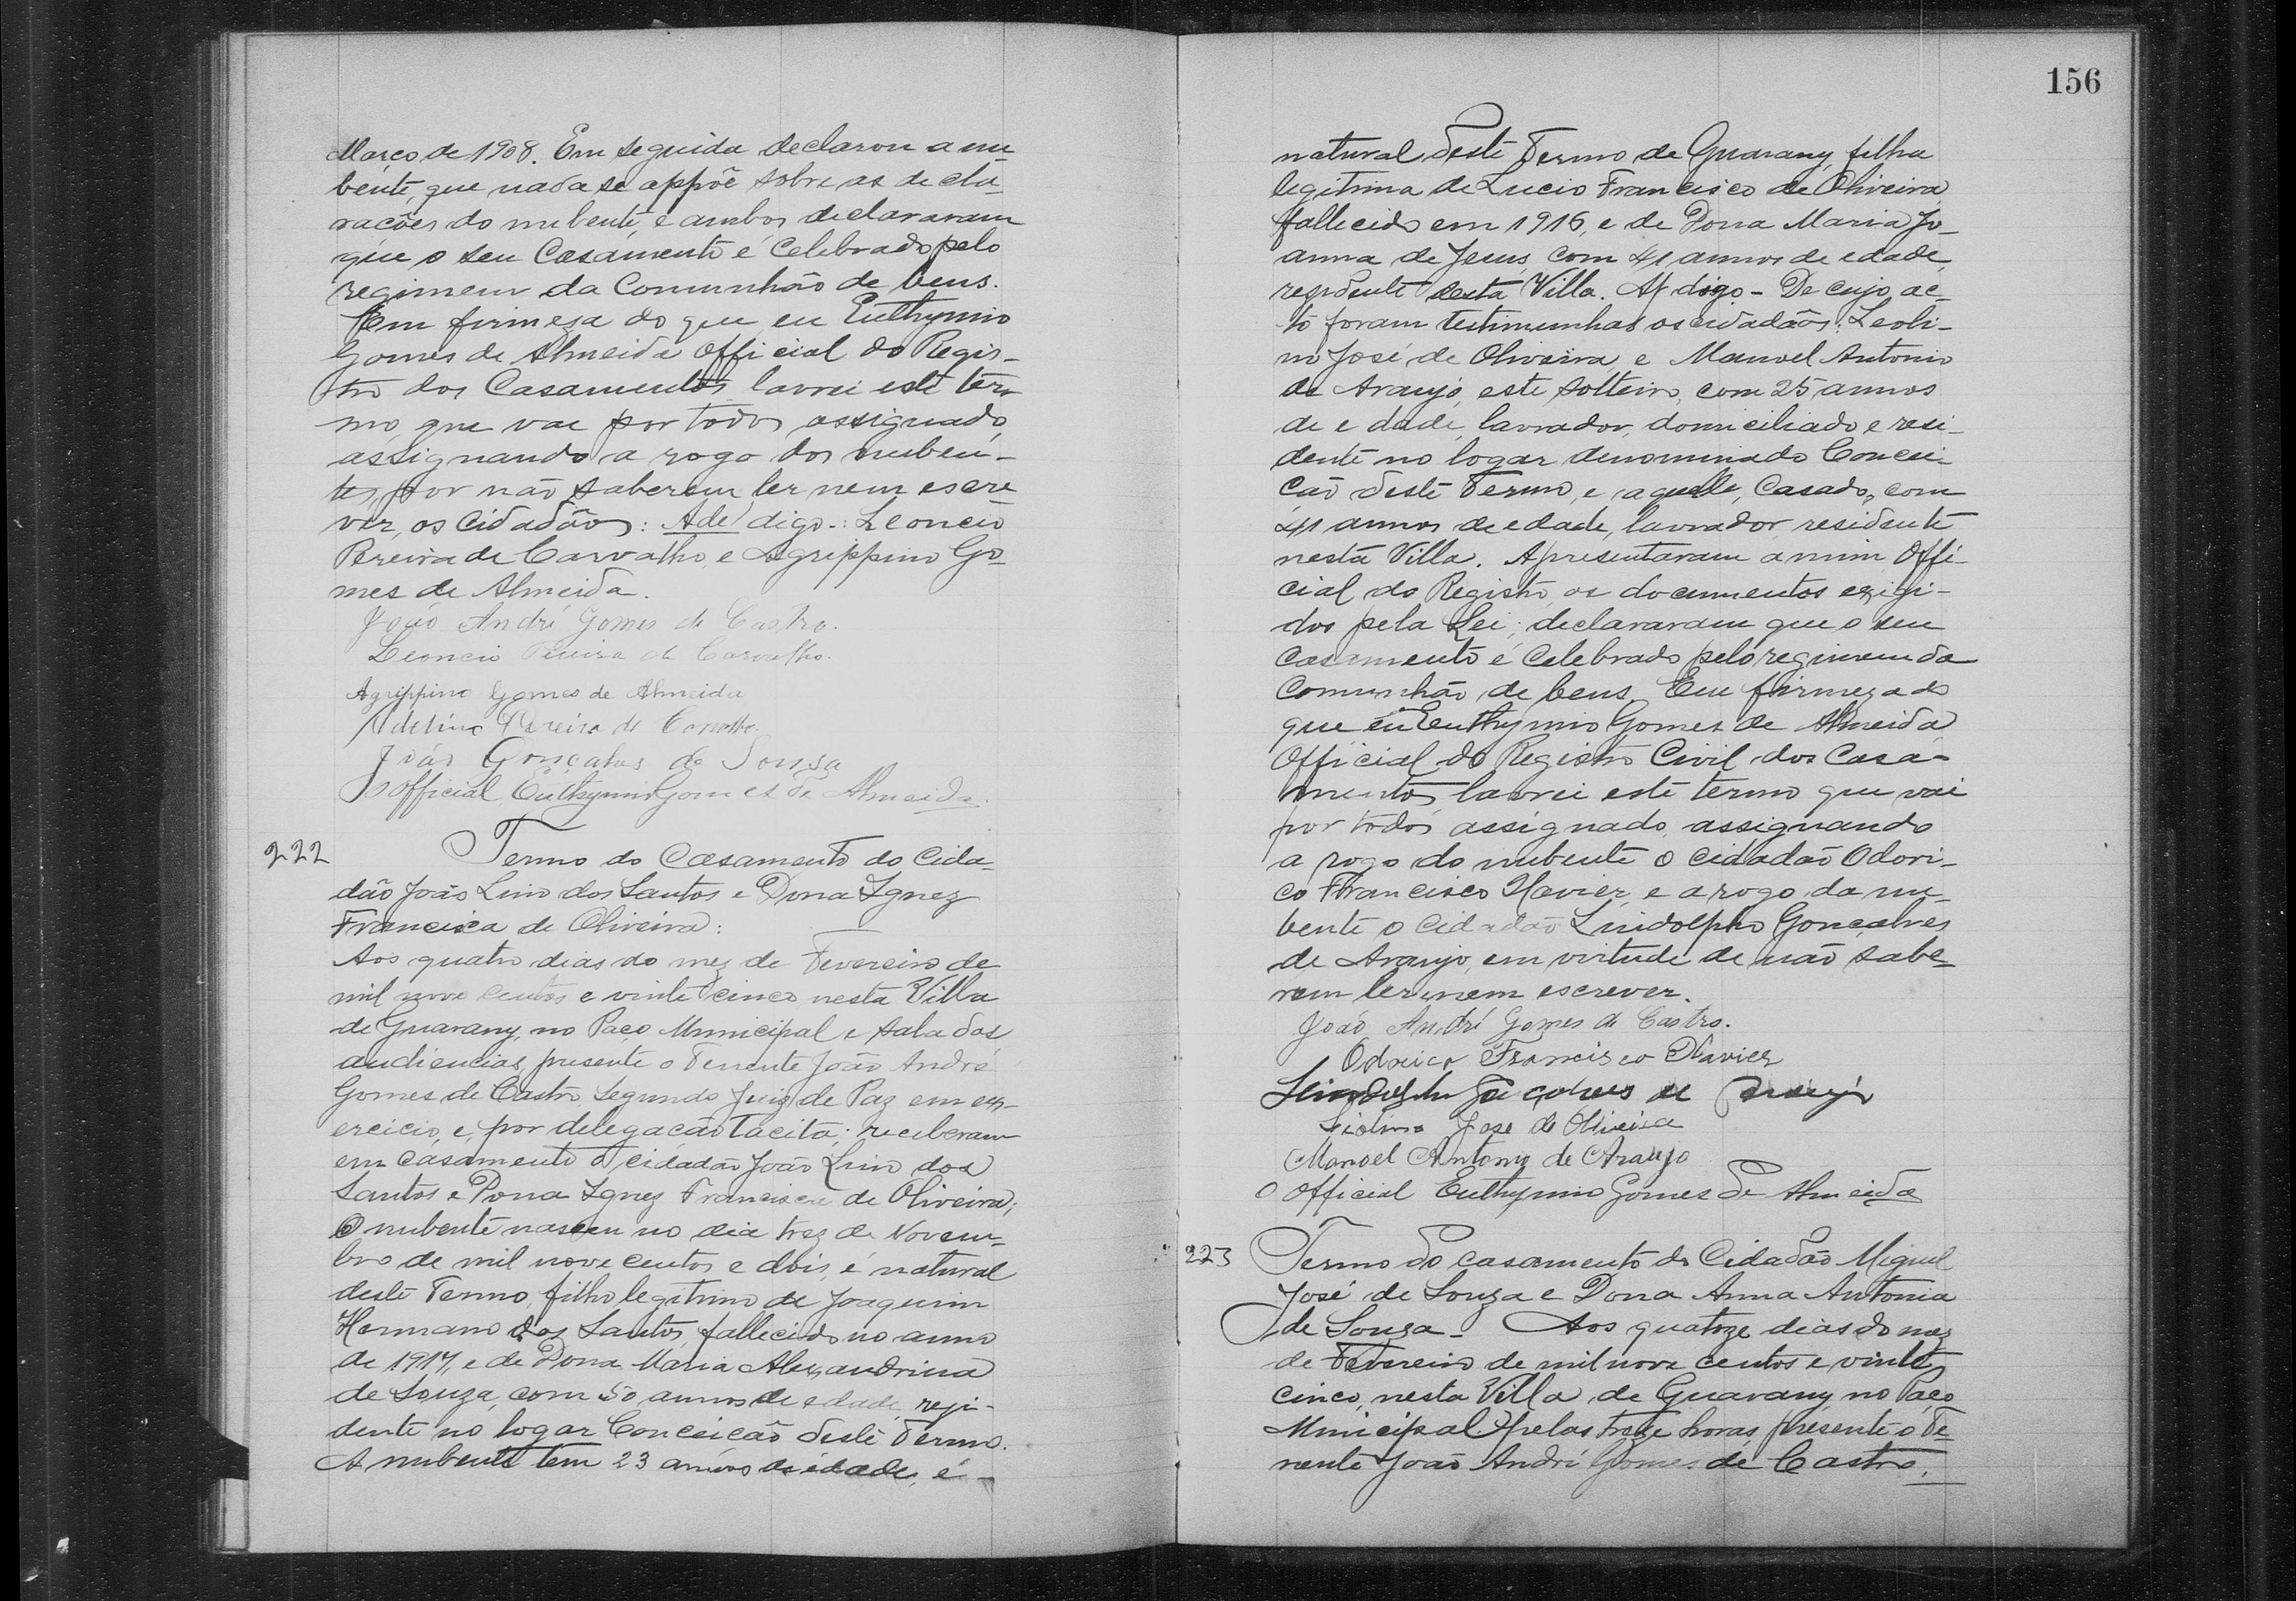 Março de 1908. Em seguida declarou a nu-
bente, que nada se appõe sobre as decla-
rações do nubente, e ambos declararam
que o seu Casamento é Celebrado pelo
regimem da Comunhão de bens.
Em firmeza do que eu Euthymio
Gomes de Almeida Official do Regis-
tro dos Casamentos lavrei este ter-
mo, que vae por todos assignado,
assignando a rogo dos nuben-
tes, por não saberem ler nem escre
ver, os Cidadãos: Adel digo-: Leoncio
Pereira de Carvalho, e Agrippino Go-
mes de Almeida.
João André Gomes de Castro.
Leoncio Pereira de Carvalho.
Agrippino Gomes de Almeida
Adelino Pereira de Carvalho.
João Gonçalves de Sousa
O official Euthymio Gomes de Almeida.
222
Termo do Casamento do Cida-
dão João Lino dos Santos e Dona Ignez
Francisca de Oliveira:
Aos quatro dias do mez de Fevereiro de
mil nove centos e vinte cinco nesta Villa
de Guarany, no Paço Municipal e sala das
audiencias, presente o Tenente João André
Gomes de Castro Segundo Juiz de Paz em ex-
ercicio, e, por delegacão tacita; receberam
em casamento o cidadão João Lino dos
Santos e Dona Ignez Francisca de Oliveira;
O nubente nasceu no dia trez de Novem-
bro de mil nove centos e dois, é natural
deste Termo, filho legitimo de Joaquim
Hermano dos Santos, fallecido no anno
de 1917, e de Dona Maria Alexandrina
de Souza, com 50 annos de edade, rezi-
dente no logar Conceição deste Termo.
A nubente tem 23 annos de edade, é
156
natural deste Termo de Guarany, filha
legitima de Lucio Francisco de Oliveira
fallecido em 1916, e de Dona Maria Jo-
anna de Jesus, com 41 annos de edade,
rezidente desta Villa. At digo - De cujo ac-
to foram testimunhas os cidadãos: Leoli-
no José de Oliveira e Manoel Antonio
de Araujo, este solteiro, com 25 annos
de edade, lavrador, domiciliado e resi-
dente no logar denominado Concei-
ção deste Termo, e aquelle, Casado, com
41 annos de edade, lavrador, residente
nesta Villa. Apresentaram a mim Offi-
cial do Registro, os documentos exigi-
dos pela Lei; declararam que o seu
Casamento é Celebrado pelo regimem da
Comunhão de bens. Em firmeza do
que eu Euthymio Gomes de Almeida
Official do Registro Civil dos Casa-
mentos lavrei este termo que vai
por todos assignado, assignando
a rogo do nubente o cidadão Odori-
co Francisco Xavier, e a rogo da nu-
bente o cidadão Lindolpho Gonçalves
de Araujo, em virtude de não sabe-
rem ler nem escrever.
João André Gomes de Castro.
Odorico Francisco Xavier
Lindolpho Gonçalves de Araujo
Leolino Jose de Oliveira
Manoel Antonio de Araujo
O Official Euthymio Gomes de Almeida
223
Termo do casamento do Cidadão Miguel
José de Souza e Dona Anna Antonia
de Souza - Aos quatoze dias do mez
de Fevereiro de mil nove centos e vinte
cinco, nesta Villa de Guarany, no Paço
Municipal pelas treze horas, presente o Te-
nente João André Gomes de Castro,